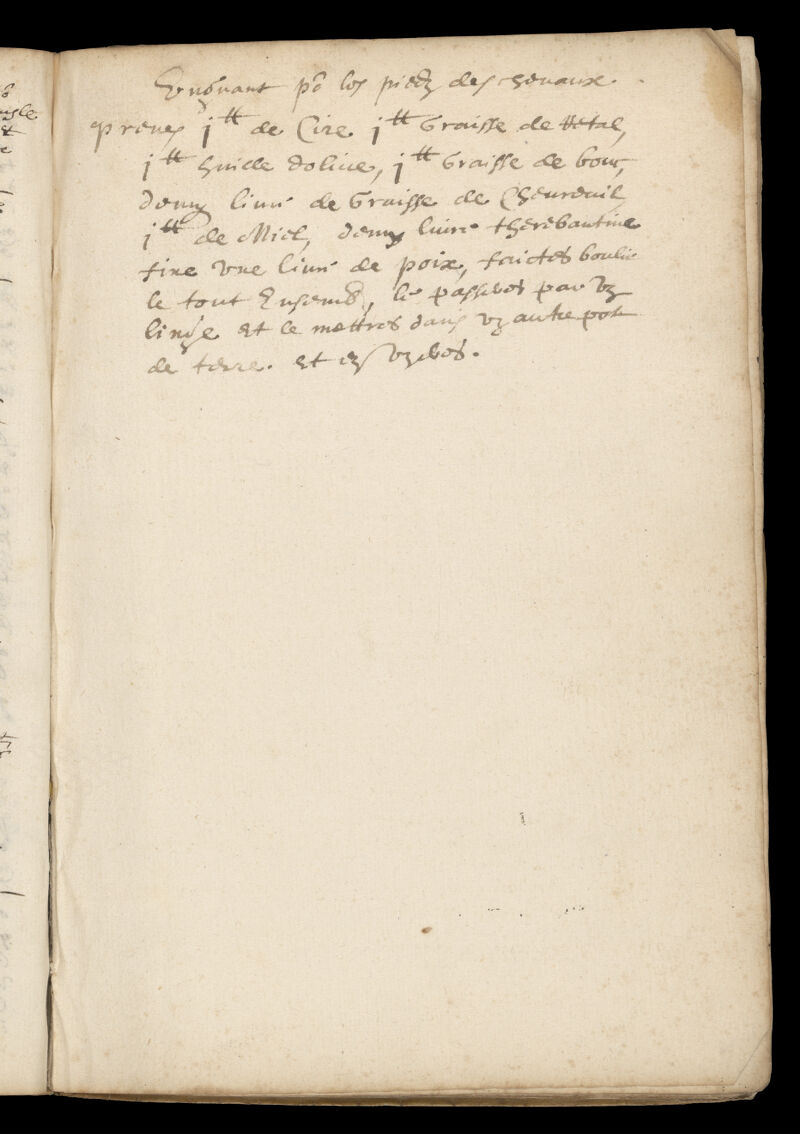 Unguant po les piedz des chevaux.
prenes j tt de Cire j tt Graisse de
j tt huille dolive, j tt Graisse de bouc,
demy livre de Graisse de Cheureuil,
j tt de Miel, demy livre therebantine
fine vne livre de poix, faictes boulir
le tout Ensemb, le passeres par vn
linge et le mettres dans vn autre pot
de terre. et en vseres.